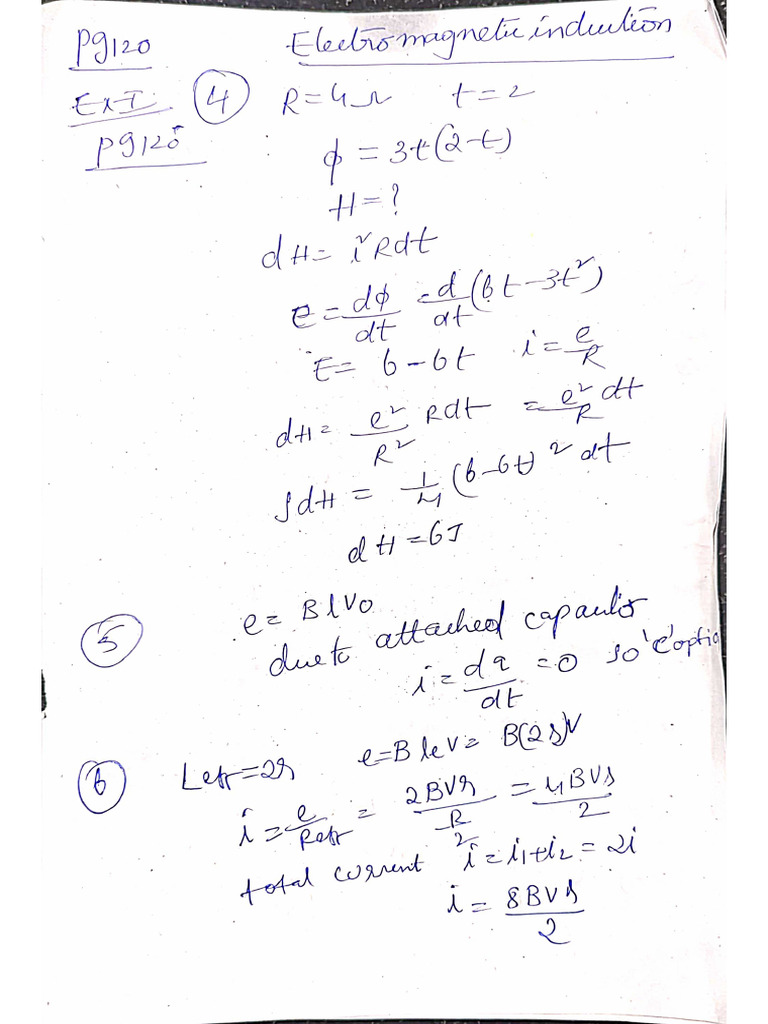 Pg120 Electromagnetic induction
Ex I ④ R=4Ω t=2
Pg120
ϕ = 3t(2-t)
H=?
dH= i²Rdt
e = dϕ/dt = d/dt (6t-3t²)
E= 6-6t i = e/R
dH = e²/R² Rdt = e²/R dt
∫dH = 1/4 (6-6t)² dt
dH =6J
⑤ e= BlV₀
due to attached capacitor
i = dq/dt =0 so 'C' option
⑥ Leff=2r e=Blev= B(2r)V
i = e/Reff = 2BVr/(R/2) = 4BVr/2
total current i=i₁+i₂ = 2i
i = 8BVr/2